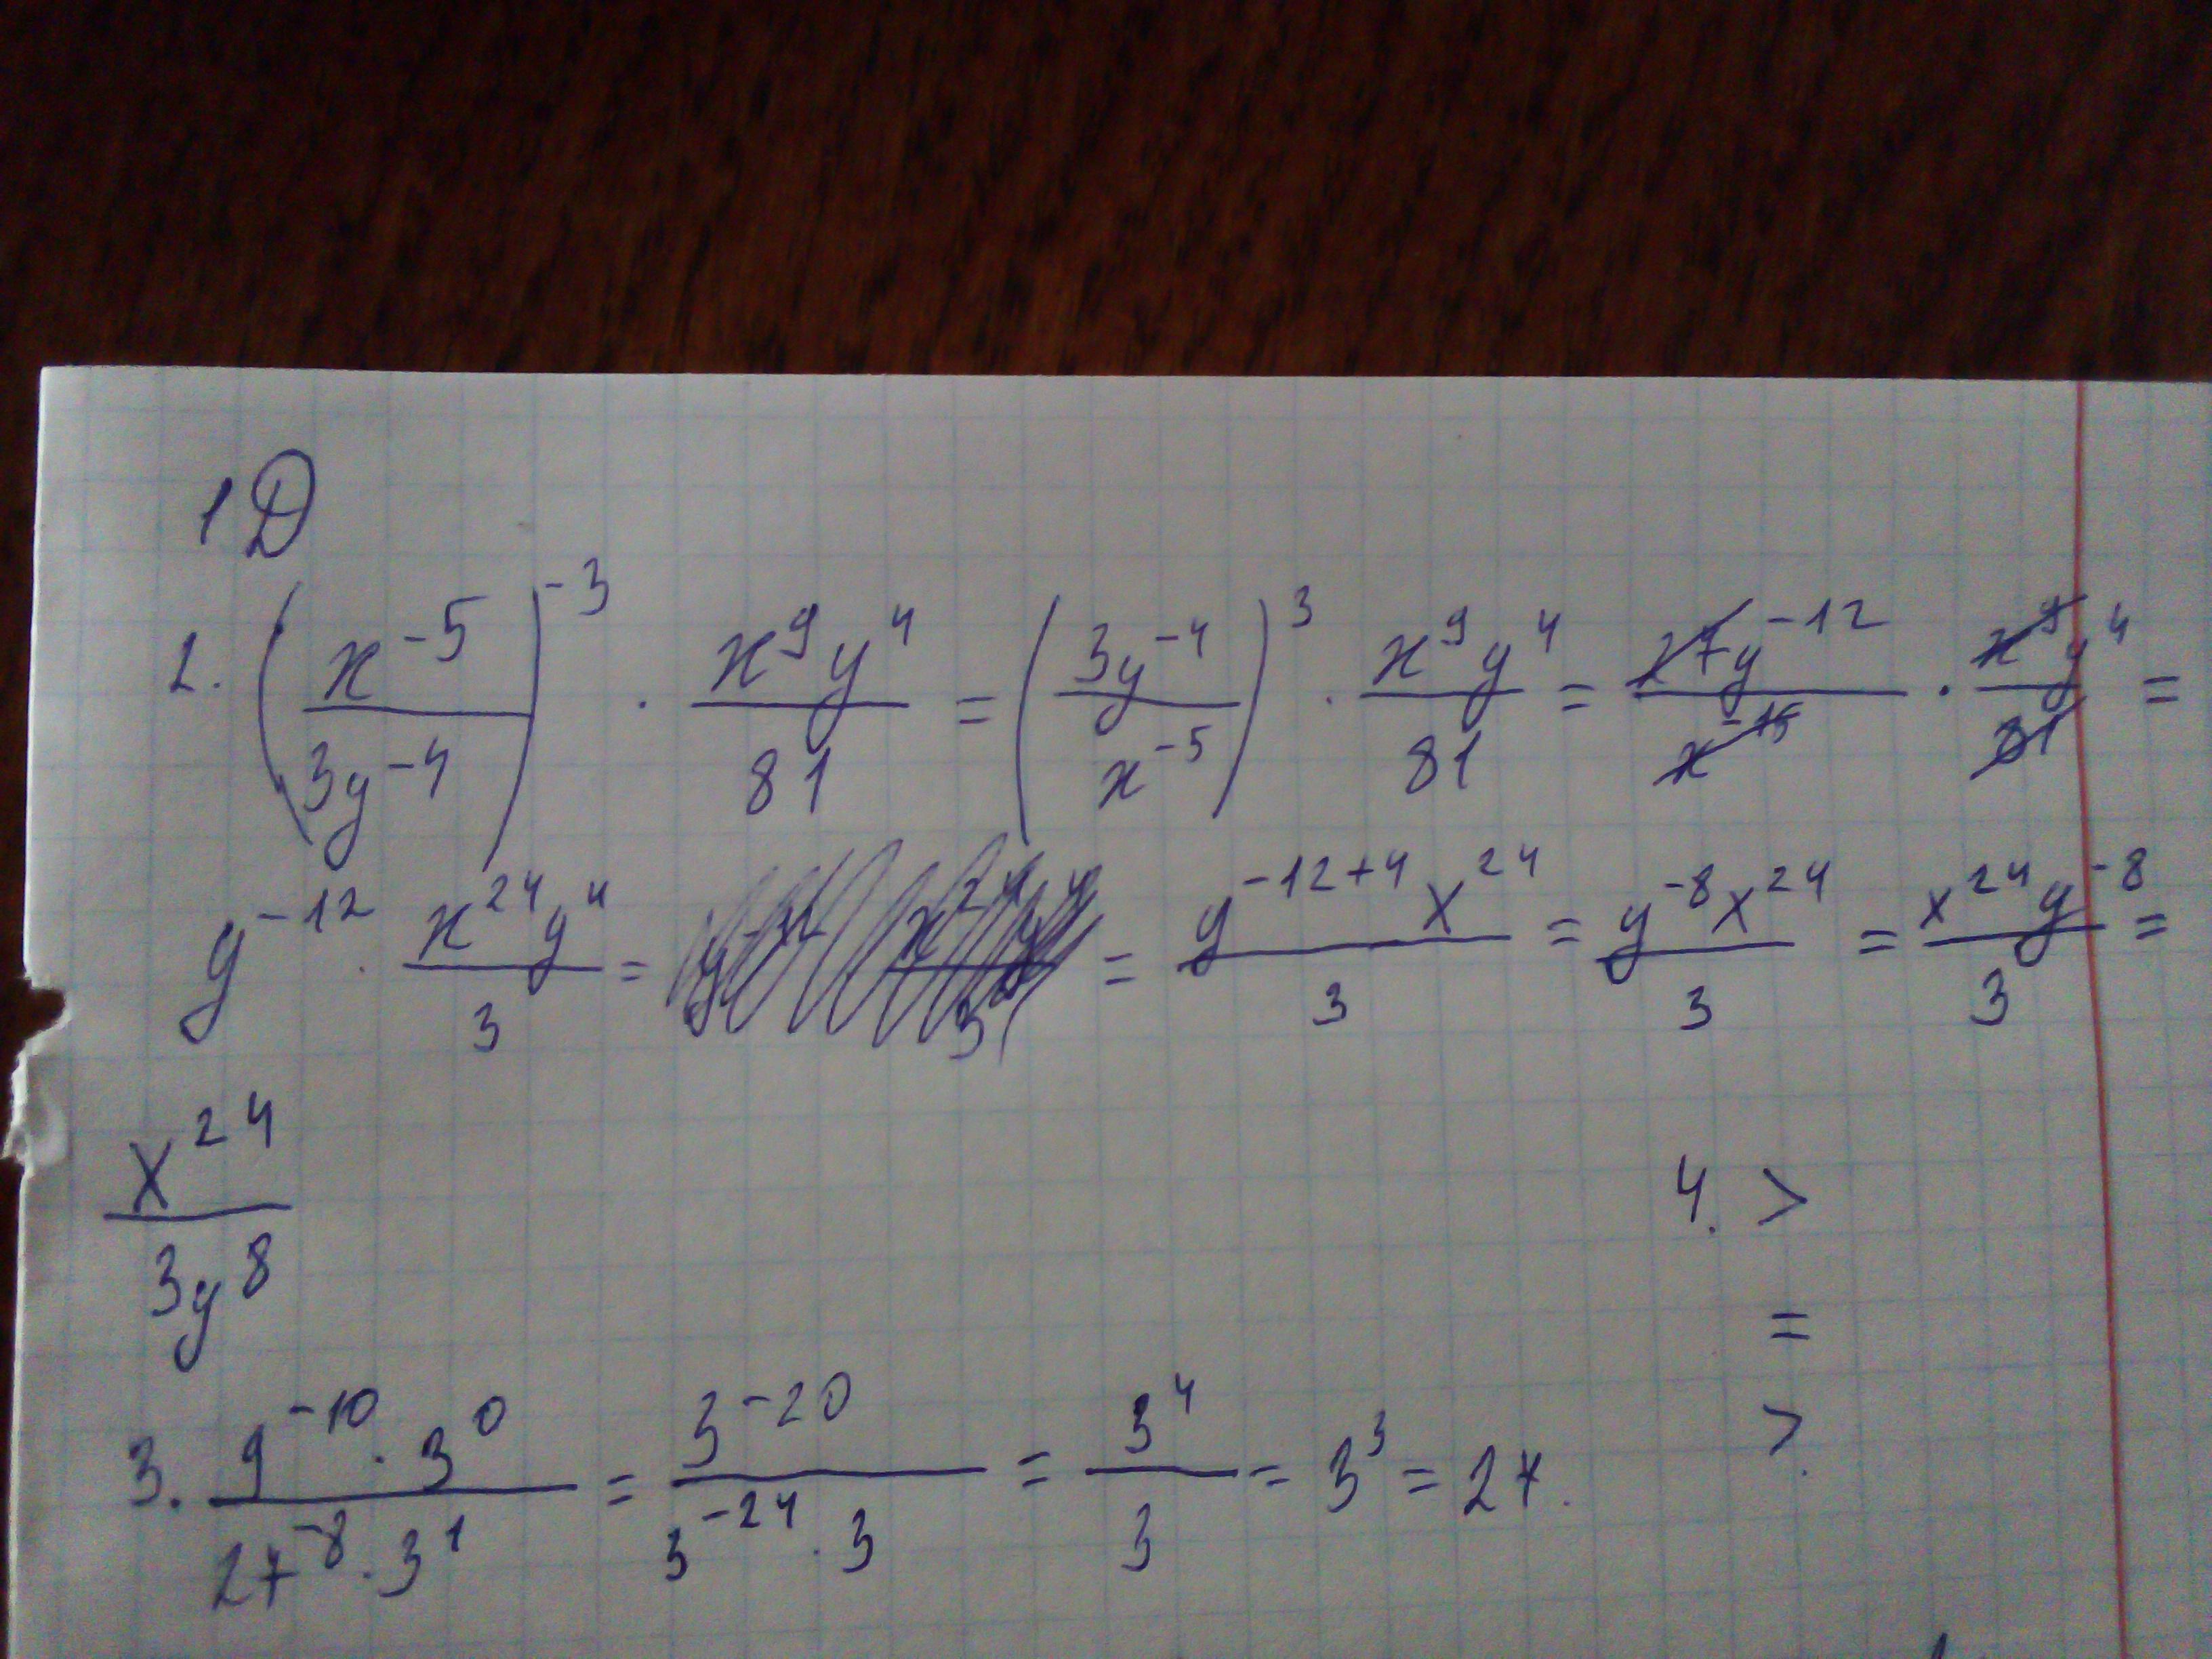 1 D
2. (x^-5 / 3y^-4)^-3 · x^9y^4 / 81 = (3y^-4 / x^-5)^3 · x^9y^4 / 81 = 27y^-12 / x^-15 · x^9y^4 / 81 =
y^-12 · x^24y^4 / 3 = = y^-12+4 x^24 / 3 = y^-8x^24 / 3 = x^24y^-8 / 3 =
x^24 / 3y^8
4. >
=
>.
3. 9^-10 · 3^0 / 27^-8 · 3^1 = 3^-20 / 3^-24 · 3 = 3^4 / 3 = 3^3 = 27.